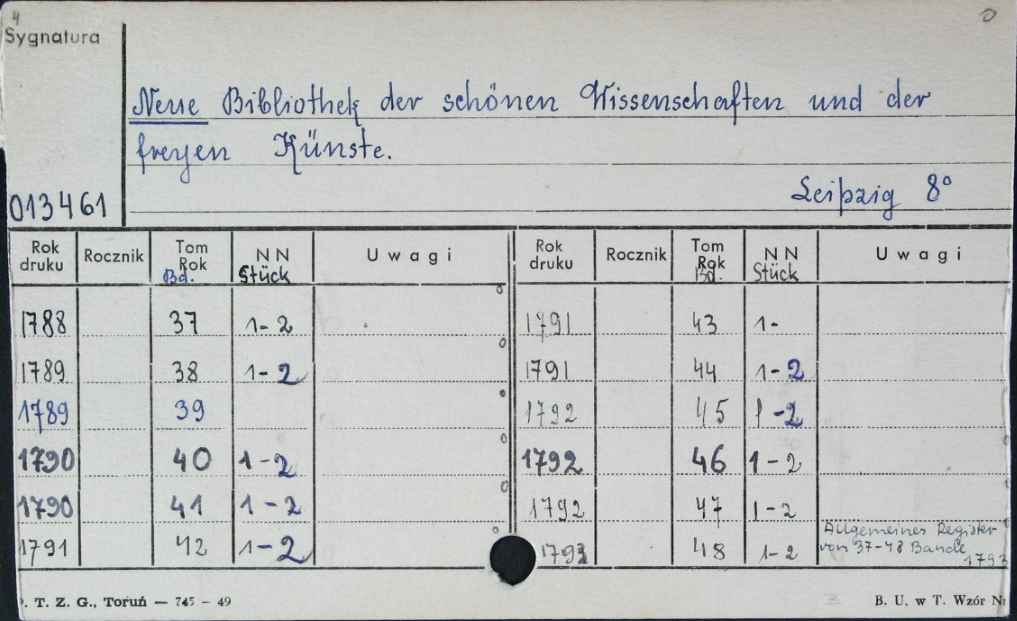 4
Sygnatura
Neue Bibliothek der schönen Wissenschaften und der
freyen Künste.
Leipzig 8°
013461
Rok druku Rocznik Tom Rok Bd. NN Stück Uwagi Rok druku Rocznik Tom Rok Bd. NN Stück Uwagi
1788 37 1-2 1791 43 1-
1789 38 1-2 1791 44 1-2
1789 39 1792 45 1-2
1790 40 1-2 1792 46 1-2
1790 41 1-2 1792 47 1-2
1791 42 1-2 1793 48 1-2 Allgemeines Register
von 37-48 Bande
1793
. T. Z. G., Toruń — 745 – 49 B. U. w T. Wzór N